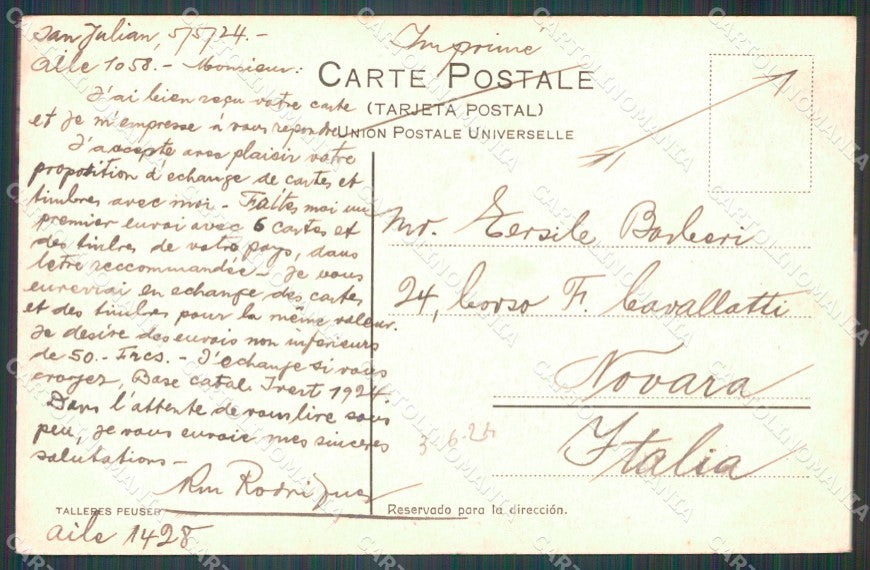 San Julian, 5/5/24.-
Aile 1058.- Monsieur:
J'ai bien reçu votre carte
et je m'empresse à vous repondre
J'accepte avec plaisir votre
proposition d'echange de cartes et
timbres avec moi - Faites moi un
premier envoi avec 6 cartes et
des timbres de votre pays, dans
letre reccommandée - Je vous
enverrai en echange des cartes
et des timbres pour la même valeur.
Je desire des envois non inferieurs
de 50.- Frcs. - J'echange si vous
croyez, Base catal. Ivert 1924.
Dans l'attente de vous lire sous
peu, je vous envoie mes sinceres
salutations -
Rodriguez
TALLERES PEUSER
Aile 1428
Imprimé
CARTE POSTALE
(TARJETA POSTAL)
UNION POSTALE UNIVERSELLE
Mr. Ersile Barberi
24, Corso F. Cavallotti
Novara
Italia
3-6-24
Reservado para la dirección.
CARTOLINOMANIA